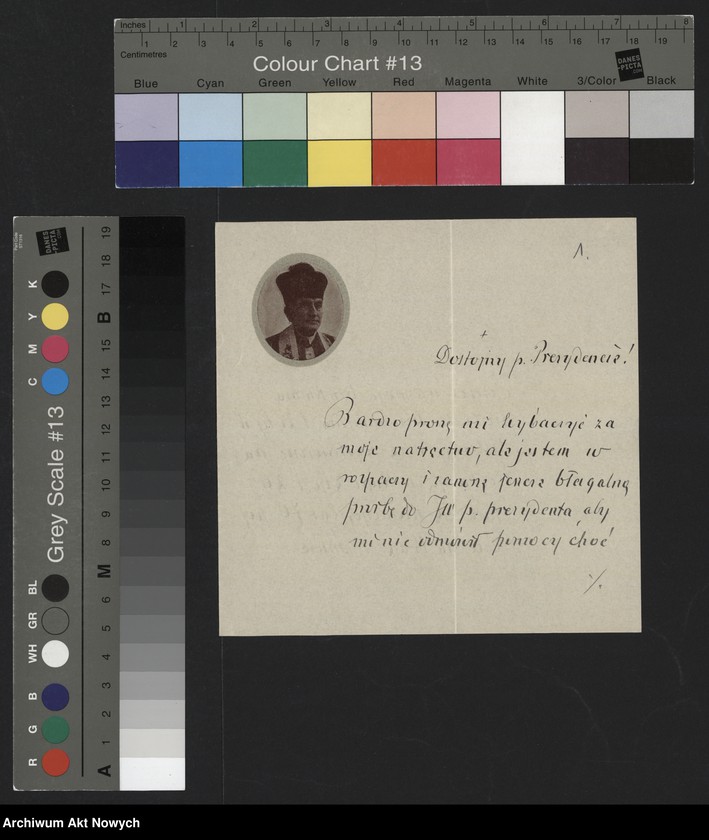 Inches 1 2 3 4 5 6 7 8
Centimetres 1 2 3 4 5 6 7 8 9 10 11 12 13 14 15 16 17 18 19
Colour Chart #13
DANES-PICTA.COM
Blue Cyan Green Yellow Red Magenta White 3/Color Black
Grey Scale #13
DANES-PICTA.COM
K Y M C
BL GR WH B G R
A 1 2 3 4 5 6 M 8 9 10 11 12 13 14 15 B 17 18 19
1.
Dostojny p. Prezydencie!
Bardzo proszę mi wybaczyć za
moje natręctwo, ale jestem w
rozpaczy i zanoszę jeszcze błagalną
prośbę do JW p. prezydenta, aby
mi nie odmówił pomocy choć
./.
Archiwum Akt Nowych